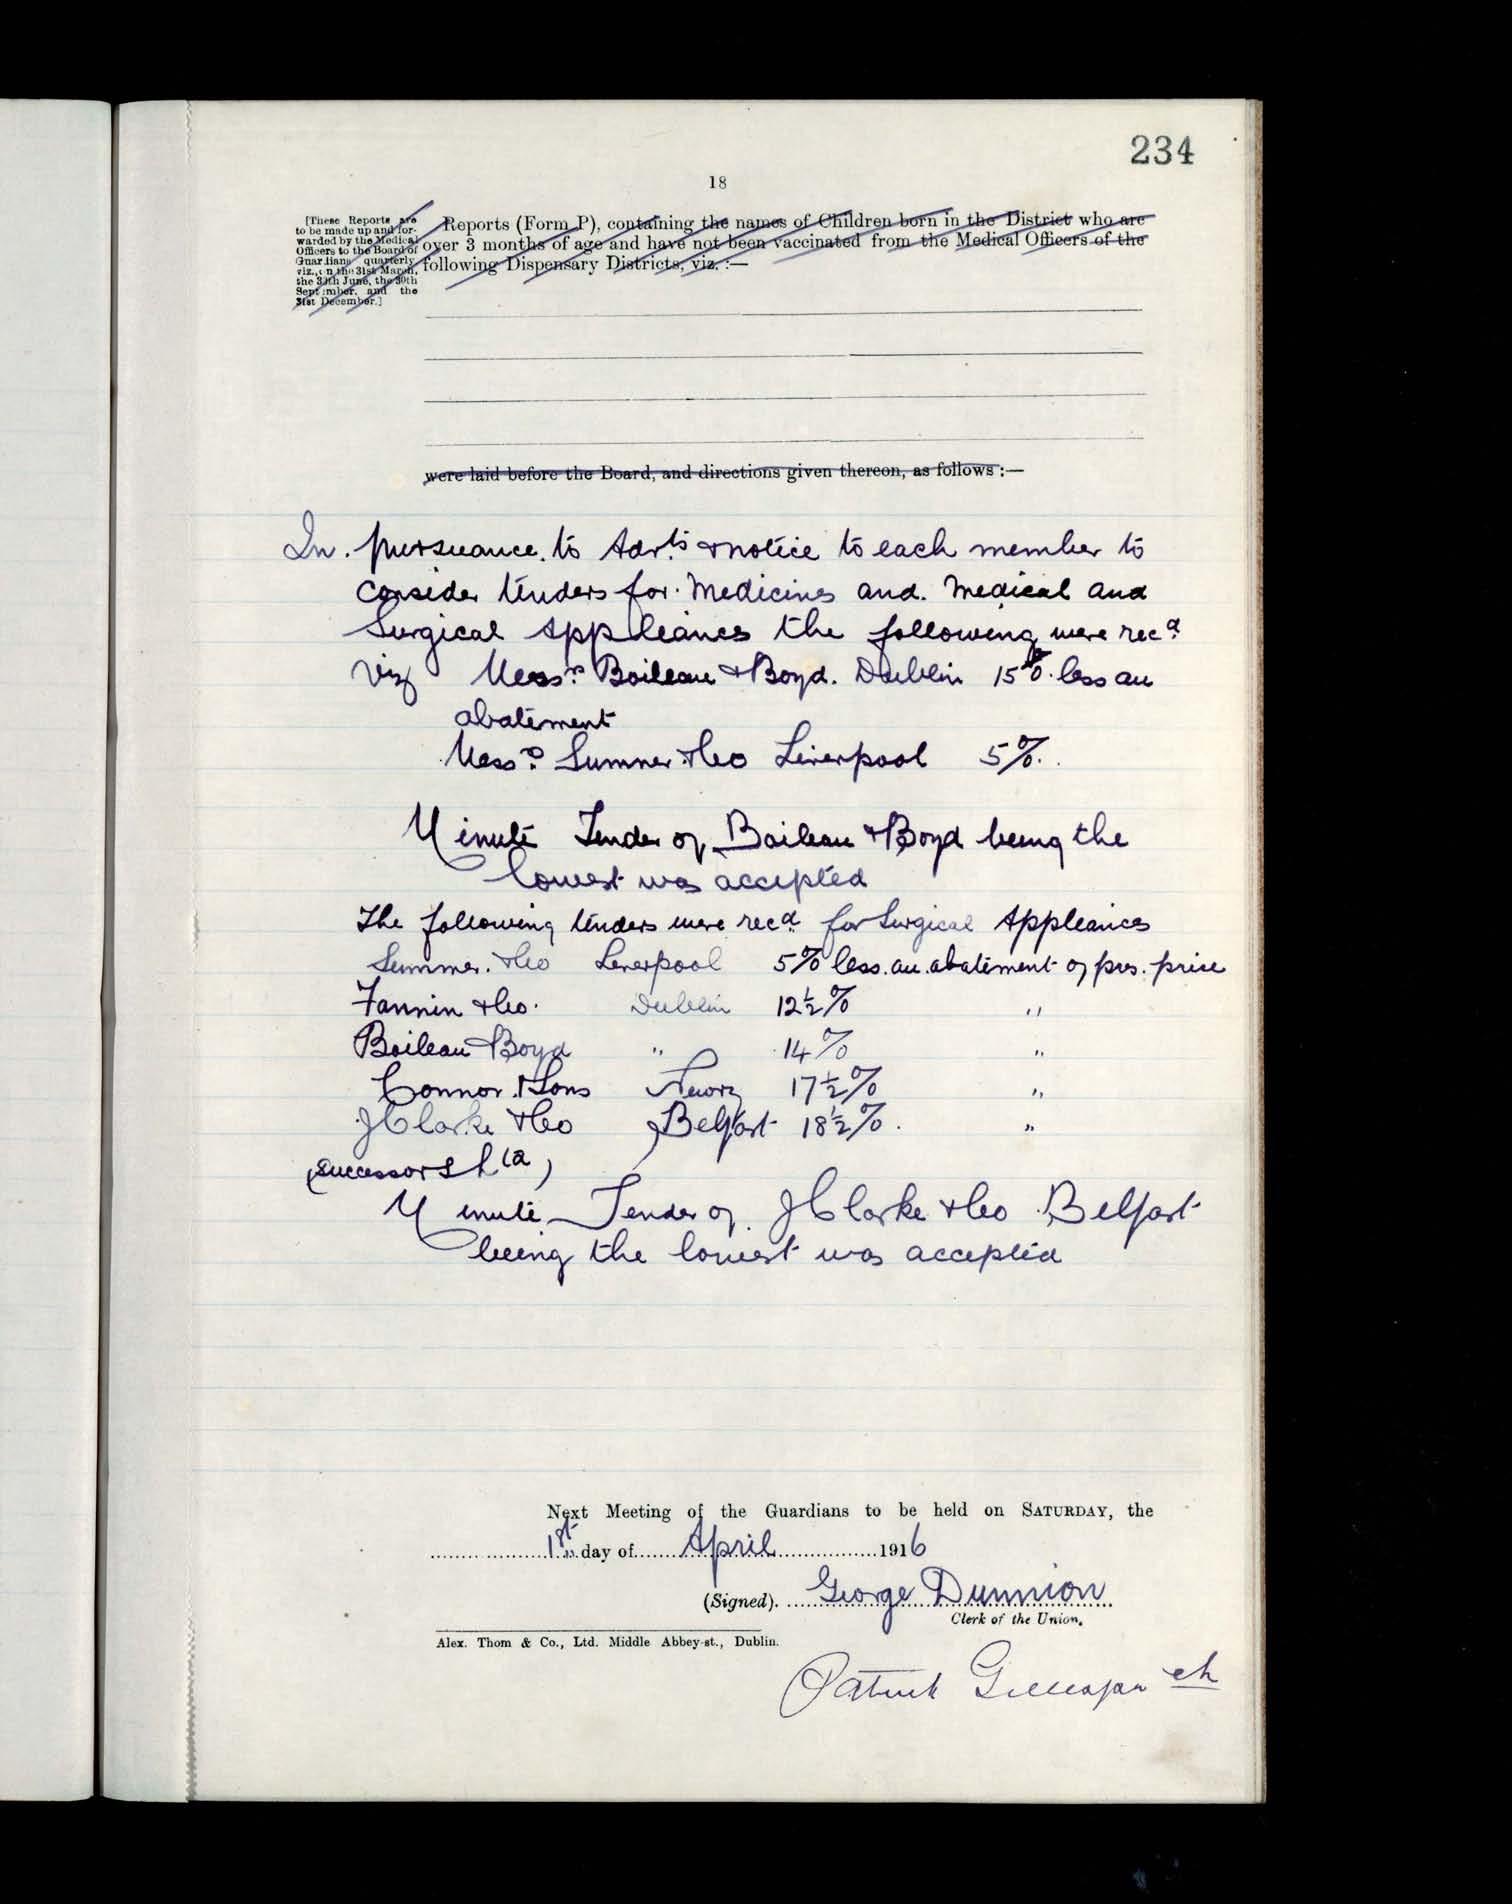 234
18
[These Reports are
to be made up and for-
warded by the Medical
Officers to the Board of
Guardians quarterly
viz., on the 31st March,
the 30th June, the 30th
September, and the
31st December.]
Reports (Form P), containing the names of Children born in the District who are
over 3 months of age and have not been vaccinated from the Medical Officers of the
following Dispensary Districts, viz. :—
were laid before the Board, and directions given thereon, as follows :—
In pursuance to Advts & notice to each member to
consider tenders for Medicines and Medical and
Surgical Appliances the following were recd
Viz Messrs Boileau & Boyd. Dublin 15% less an
abatement
Messrs Sumner & Co Liverpool 5%.
Minute Tender of Boileau & Boyd being the
lowest was accepted
The following tenders were recd for Surgical Appliances
Sumner & Co Liverpool 5% less an abatement of pres. price
Fannin & Co. Dublin 12½% "
Boileau & Boyd " 14% "
Connor & Sons Newry 17½% "
J Clarke & Co Belfast 18½%. "
(successors Ltd)
Minute Tender of J Clarke & Co Belfast
being the lowest was accepted
Next Meeting of the Guardians to be held on SATURDAY, the
1st day of April 1916
(Signed). George Dunnion
Clerk of the Union.
Alex. Thom & Co., Ltd. Middle Abbey-st., Dublin.
Patrick ch